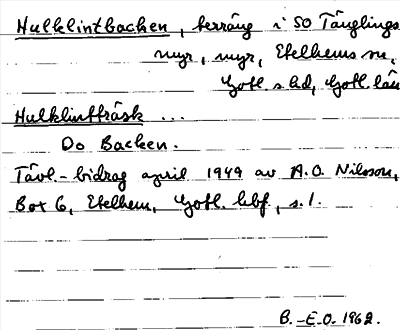 Hulklintbacken, terräng i SO Tänglings
myr, myr, Etelhems sn,
Gotl. s hd, Gotl. län
Hulklintträsk ...
Do Backen.
Tävl.-bidrag april 1949 av A.O. Nilsson,
Box 6, Etelhem, Gotl. hbf, s. 1.
B.-E.O. 1962.